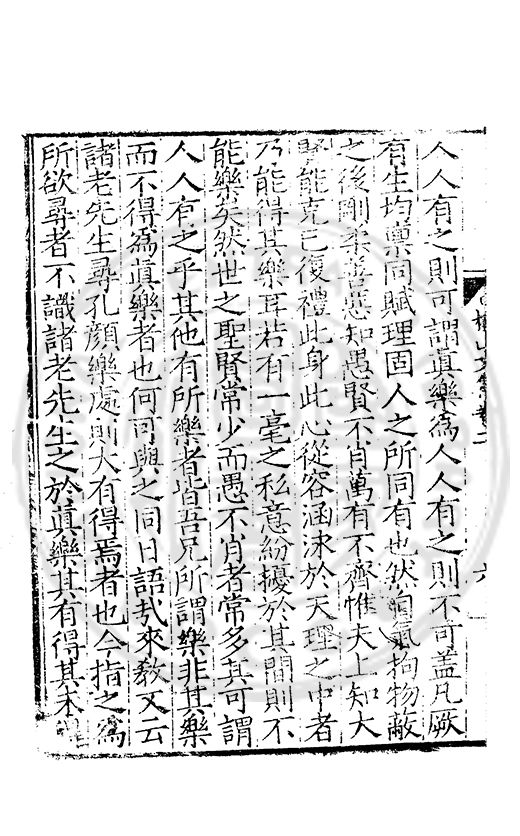 人人有之則可謂眞樂爲人人有之則不可盖凡厥
有生均稟同賦理固人之所同有也然氣拘物蔽
之後剛柔善惡知愚賢不肖萬有不齊惟夫上知大
賢能克己復禮此身此心從容涵泳於天理之中者
乃能得其樂耳若有一毫之私意紛擾於其間則不
能樂矣然世之聖賢常少而愚不肖者常多其可謂
人人有之乎其他有所樂者皆吾兄所謂樂非其樂
而不得爲眞樂者也何可與之同日語㢤來敎又云
諸老先生尋孔顔樂處則大有得焉者也今指之爲
所欲尋者不識諸老先生之於眞樂其有得其未
山文集卷二
六